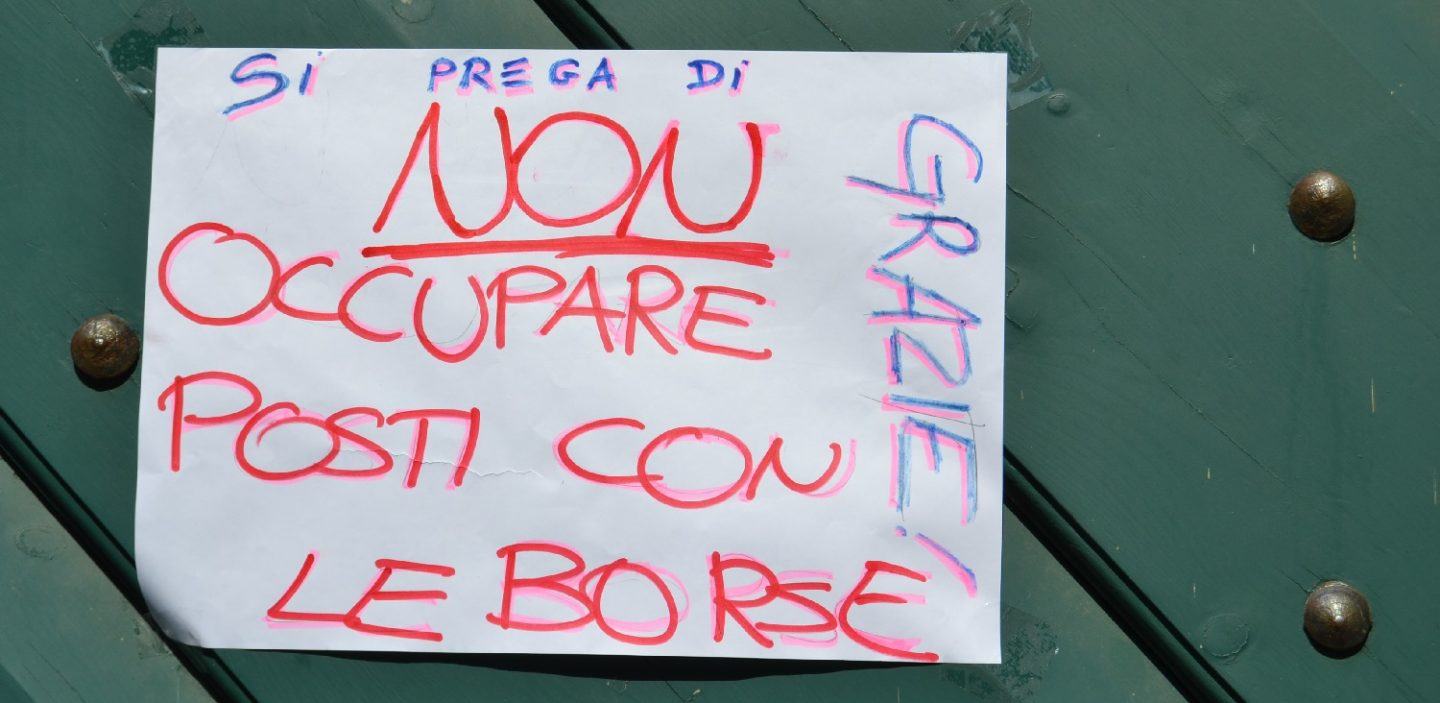 Si PREGA Di
NON
OCCUPARE
POSTI CON
LE BORSE
GRAZIE!